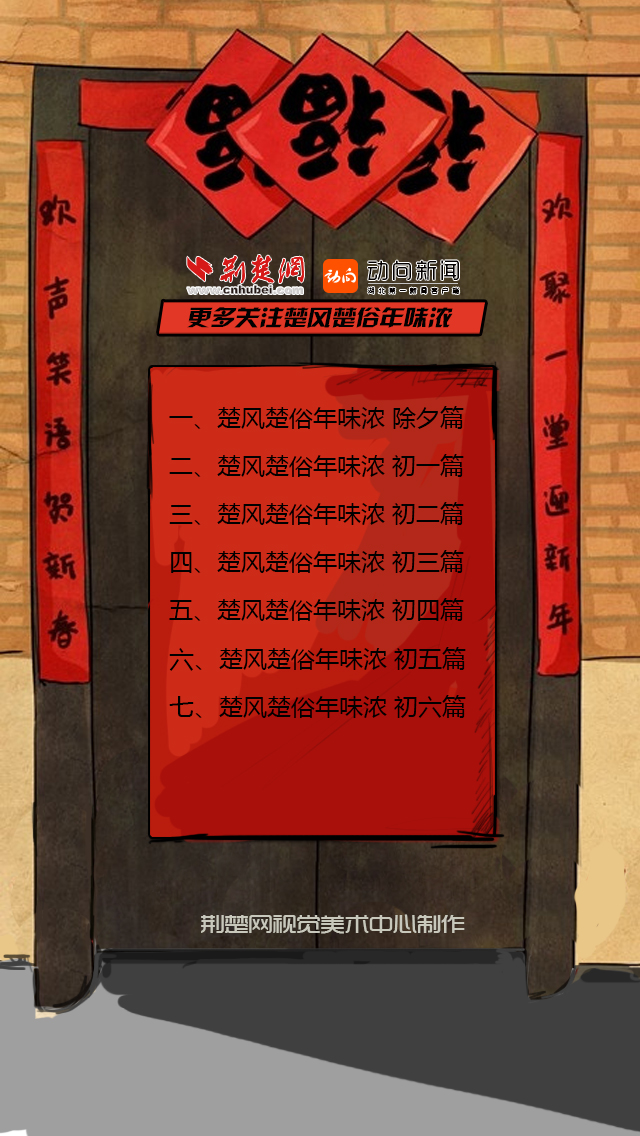 福
福
福
欢声笑语贺新春
欢聚一堂迎新年
荆楚网
www.cnhubei.com
动向
动向新闻
更多关注楚风楚俗年味浓
一、楚风楚俗年味浓 除夕篇
二、楚风楚俗年味浓 初一篇
三、楚风楚俗年味浓 初二篇
四、楚风楚俗年味浓 初三篇
五、楚风楚俗年味浓 初四篇
六、楚风楚俗年味浓 初五篇
七、楚风楚俗年味浓 初六篇
荆楚网视觉美术中心制作